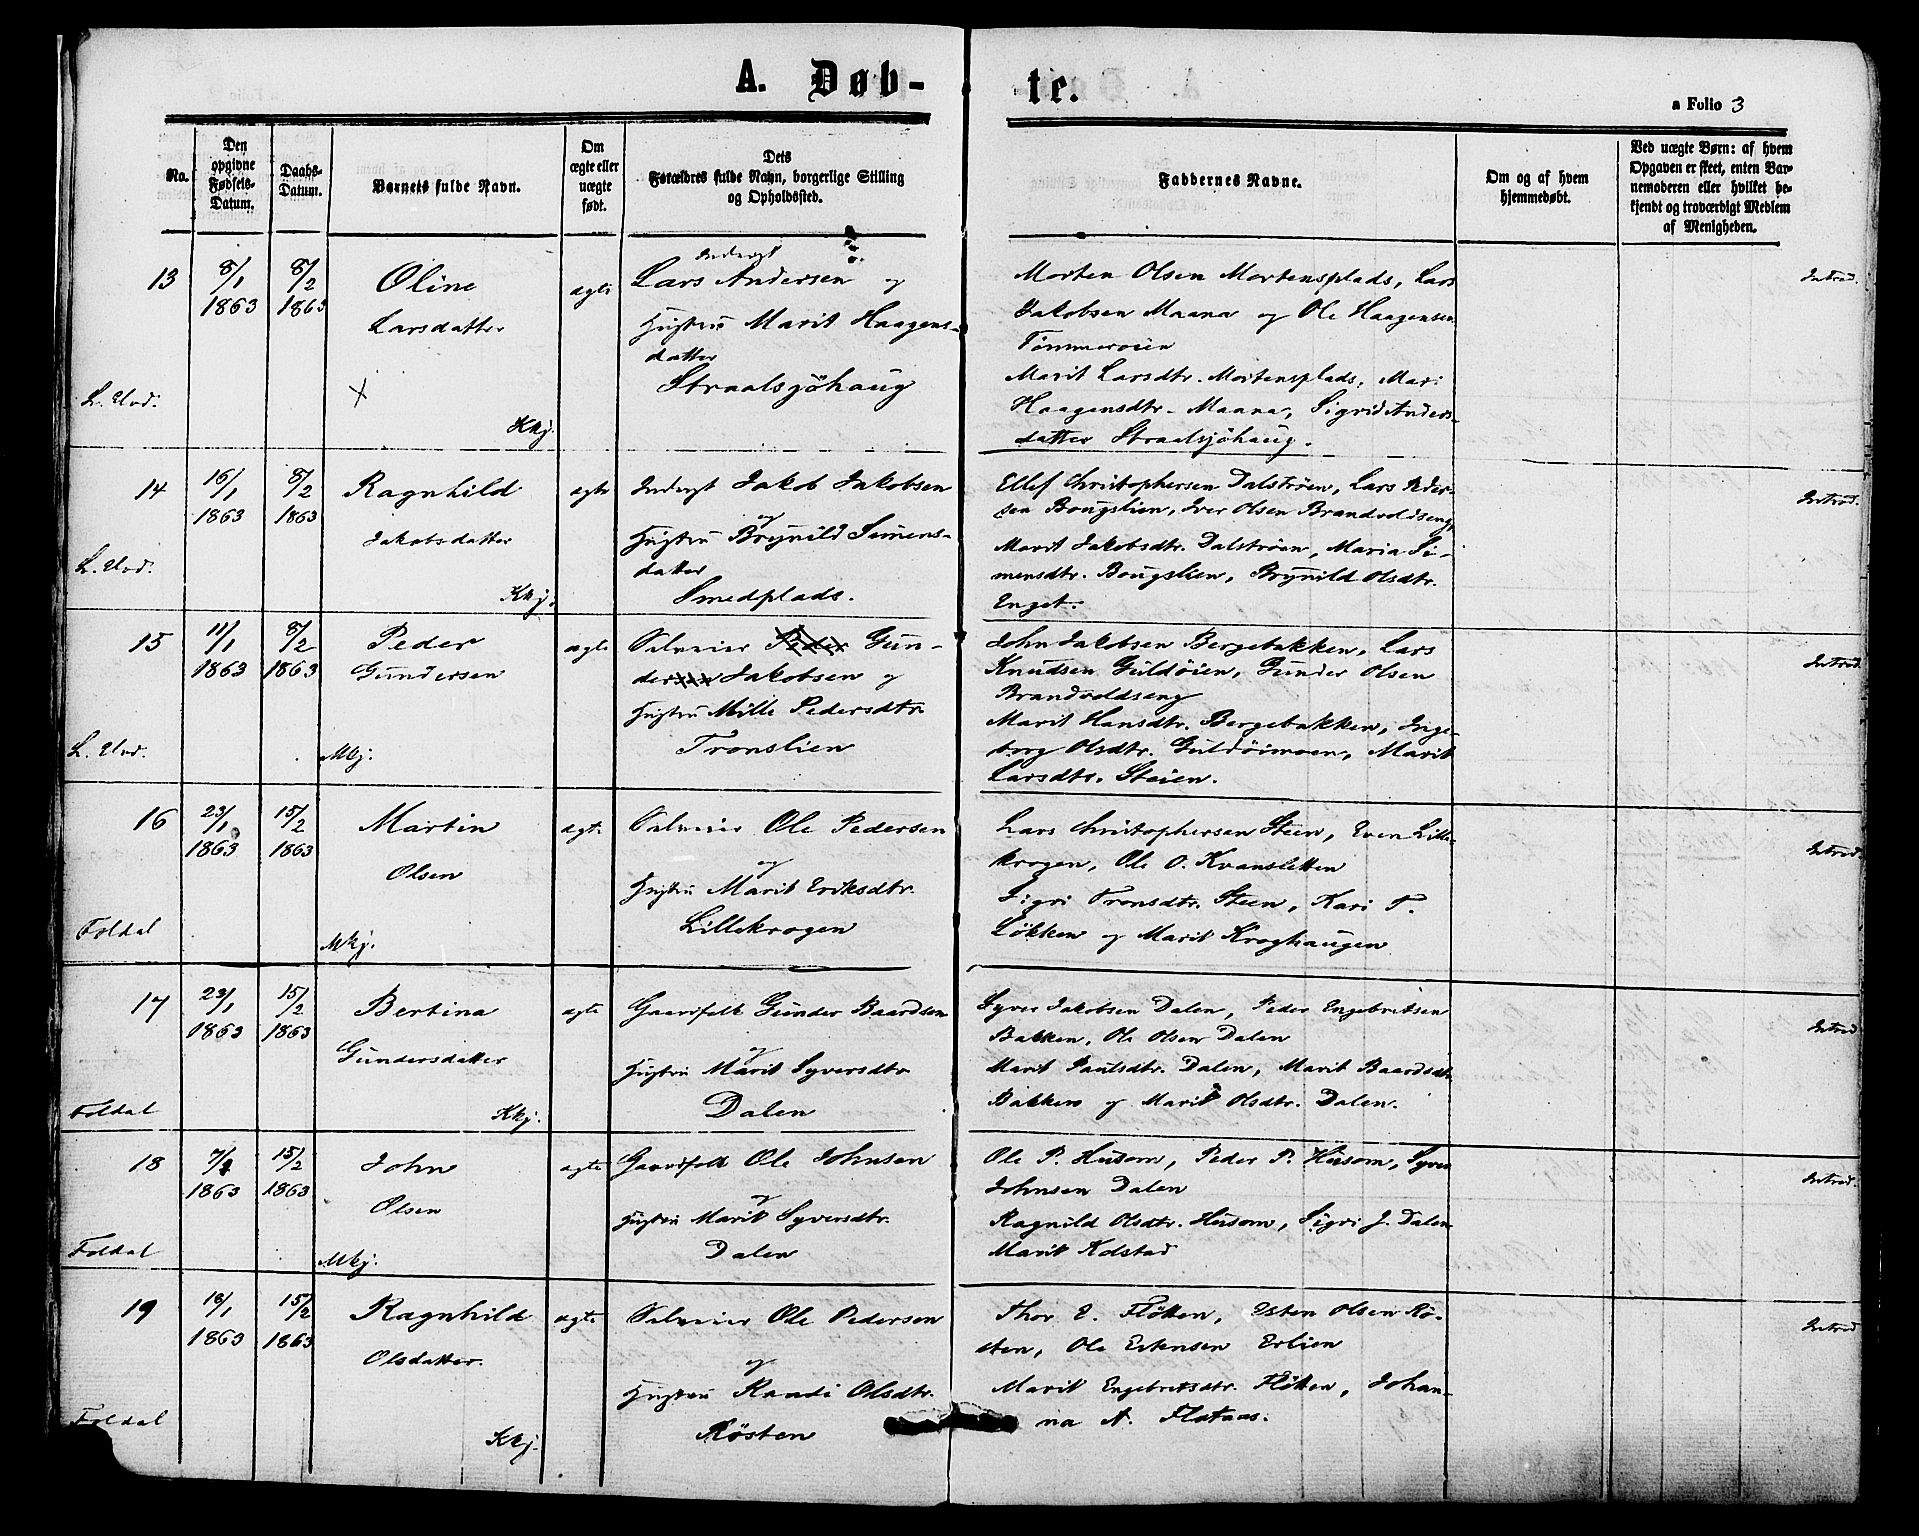 A. Døb-
te.
a Folio 3
No.
Den
opgivne
Fødsels-
Datum.
Daabs-
Datum.
Barnets fulde Navn.
Om
ægte eller
uægte
født.
Dets
Forældres fulde Navn, borgerlige Stilling
og Opholdssted.
Faddernes Navne.
Om og af hvem
hjemmedøbt.
Ved uægte Børn: af hvem
Opgaven er skeet, enten Bar-
nemoderen eller hvilket be-
kjendt og troværdigt Medlem
af Menigheden.
13
8/1
1863
8/2
1863
Oline
Larsdatter
X
Kkj.
L. Uvd.
ægte
Inderst
Lars Andersen og
Hustru Marit Haagens-
datter
Straalsjöhaug
Morten Olsen Mortensplads, Lars
Jakobsen Maana og Ole Haagensen
Tömmeroien
Marit Larsdtr. Mortensplads, Mari
Haagensdtr. Maana, Sigrid Anders-
datter Straalsjöhaug.
Introd.
14
16/1
1863
8/2
1863
Ragnhild
Jakobsdatter
Kkj.
L. Uvd.
ægte
Inderst Jakob Jakobsen
og
Hustru Brynild Simens-
datter
Smedplads.
Ellef Christophersen Dalströen, Lars Peder-
sen Bougslien, Iver Olsen Brandvoldseng,
Marit Jakobsdtr. Dalströen, Maria Si-
mensdtr. Bougslien, Brynild Olsdtr.
Enget.
Introd.
15
11/1
1863
8/2
1863
Peder
Gundersen
Mkj.
L. Uvd.
ægte
Selveier Peder Gun-
dersen Jakobsen og
Hustru Mille Pedersdtr.
Tronslien
John Jakobsen Bergebakken, Lars
Knudsen Guldöien, Gunder Olsen
Brandvoldseng
Marit Hansdtr. Bergebakken, Inge-
borg Olsdtr. Guldöimoen, Marit
Larsdtr. Steien.
Introd.
16
23/1
1863
15/2
1863
Martin
Olsen
Mkj.
Foldal
ægte
Selveier Ole Pedersen
og
Hustru Marit Eriksdtr.
Lillekrogen
Lars Christophersen Steen, Even Lille-
krogen, Ole O. Kvansletten
Sigri Tronsdtr. Steen, Kari T.
Løkken og Marit Kroghaugen
Introd.
17
23/1
1863
15/2
1863
Bertina
Gundersdatter
Kkj.
Foldal
ægte
Gaardfolk Gunder Baardsen
og
Hustru Marit Syversdtr
Dalen
Syver Jakobsen Dalen, Peder Engebretsen
Bakken, Ole Olsen Dalen
Marit Paulsdtr. Dalen, Marit Baardsdtr.
Bakken og Marit Olsdtr. Dalen.
Introd
18
1863
15/2
1863
John
Olsen
Mkj.
Foldal
ægte
Gaardfolk Ole Johnsen
og
Hustru Marit Syversdtr.
Dalen
Ole P. Husom, Peder P. Husom, Syver
Johnsen Dalen
Ragnild Olsdtr. Husom, Sigri J. Dalen
Marit Kolstad
Introd.
19
18/1
1863
15/2
1863
Ragnhild
Olsdatter.
Kkj.
Foldal
ægte
Selveier Ole Pedersen
og
Hustru Randi Olsdtr.
Rösten
Thor E. Fløtten, Esten Olsen Rö-
sten, Ole Estensen Erlien
Marit Engebretsdtr. Fløtten, Johan-
na A. Flataas.
Introd.